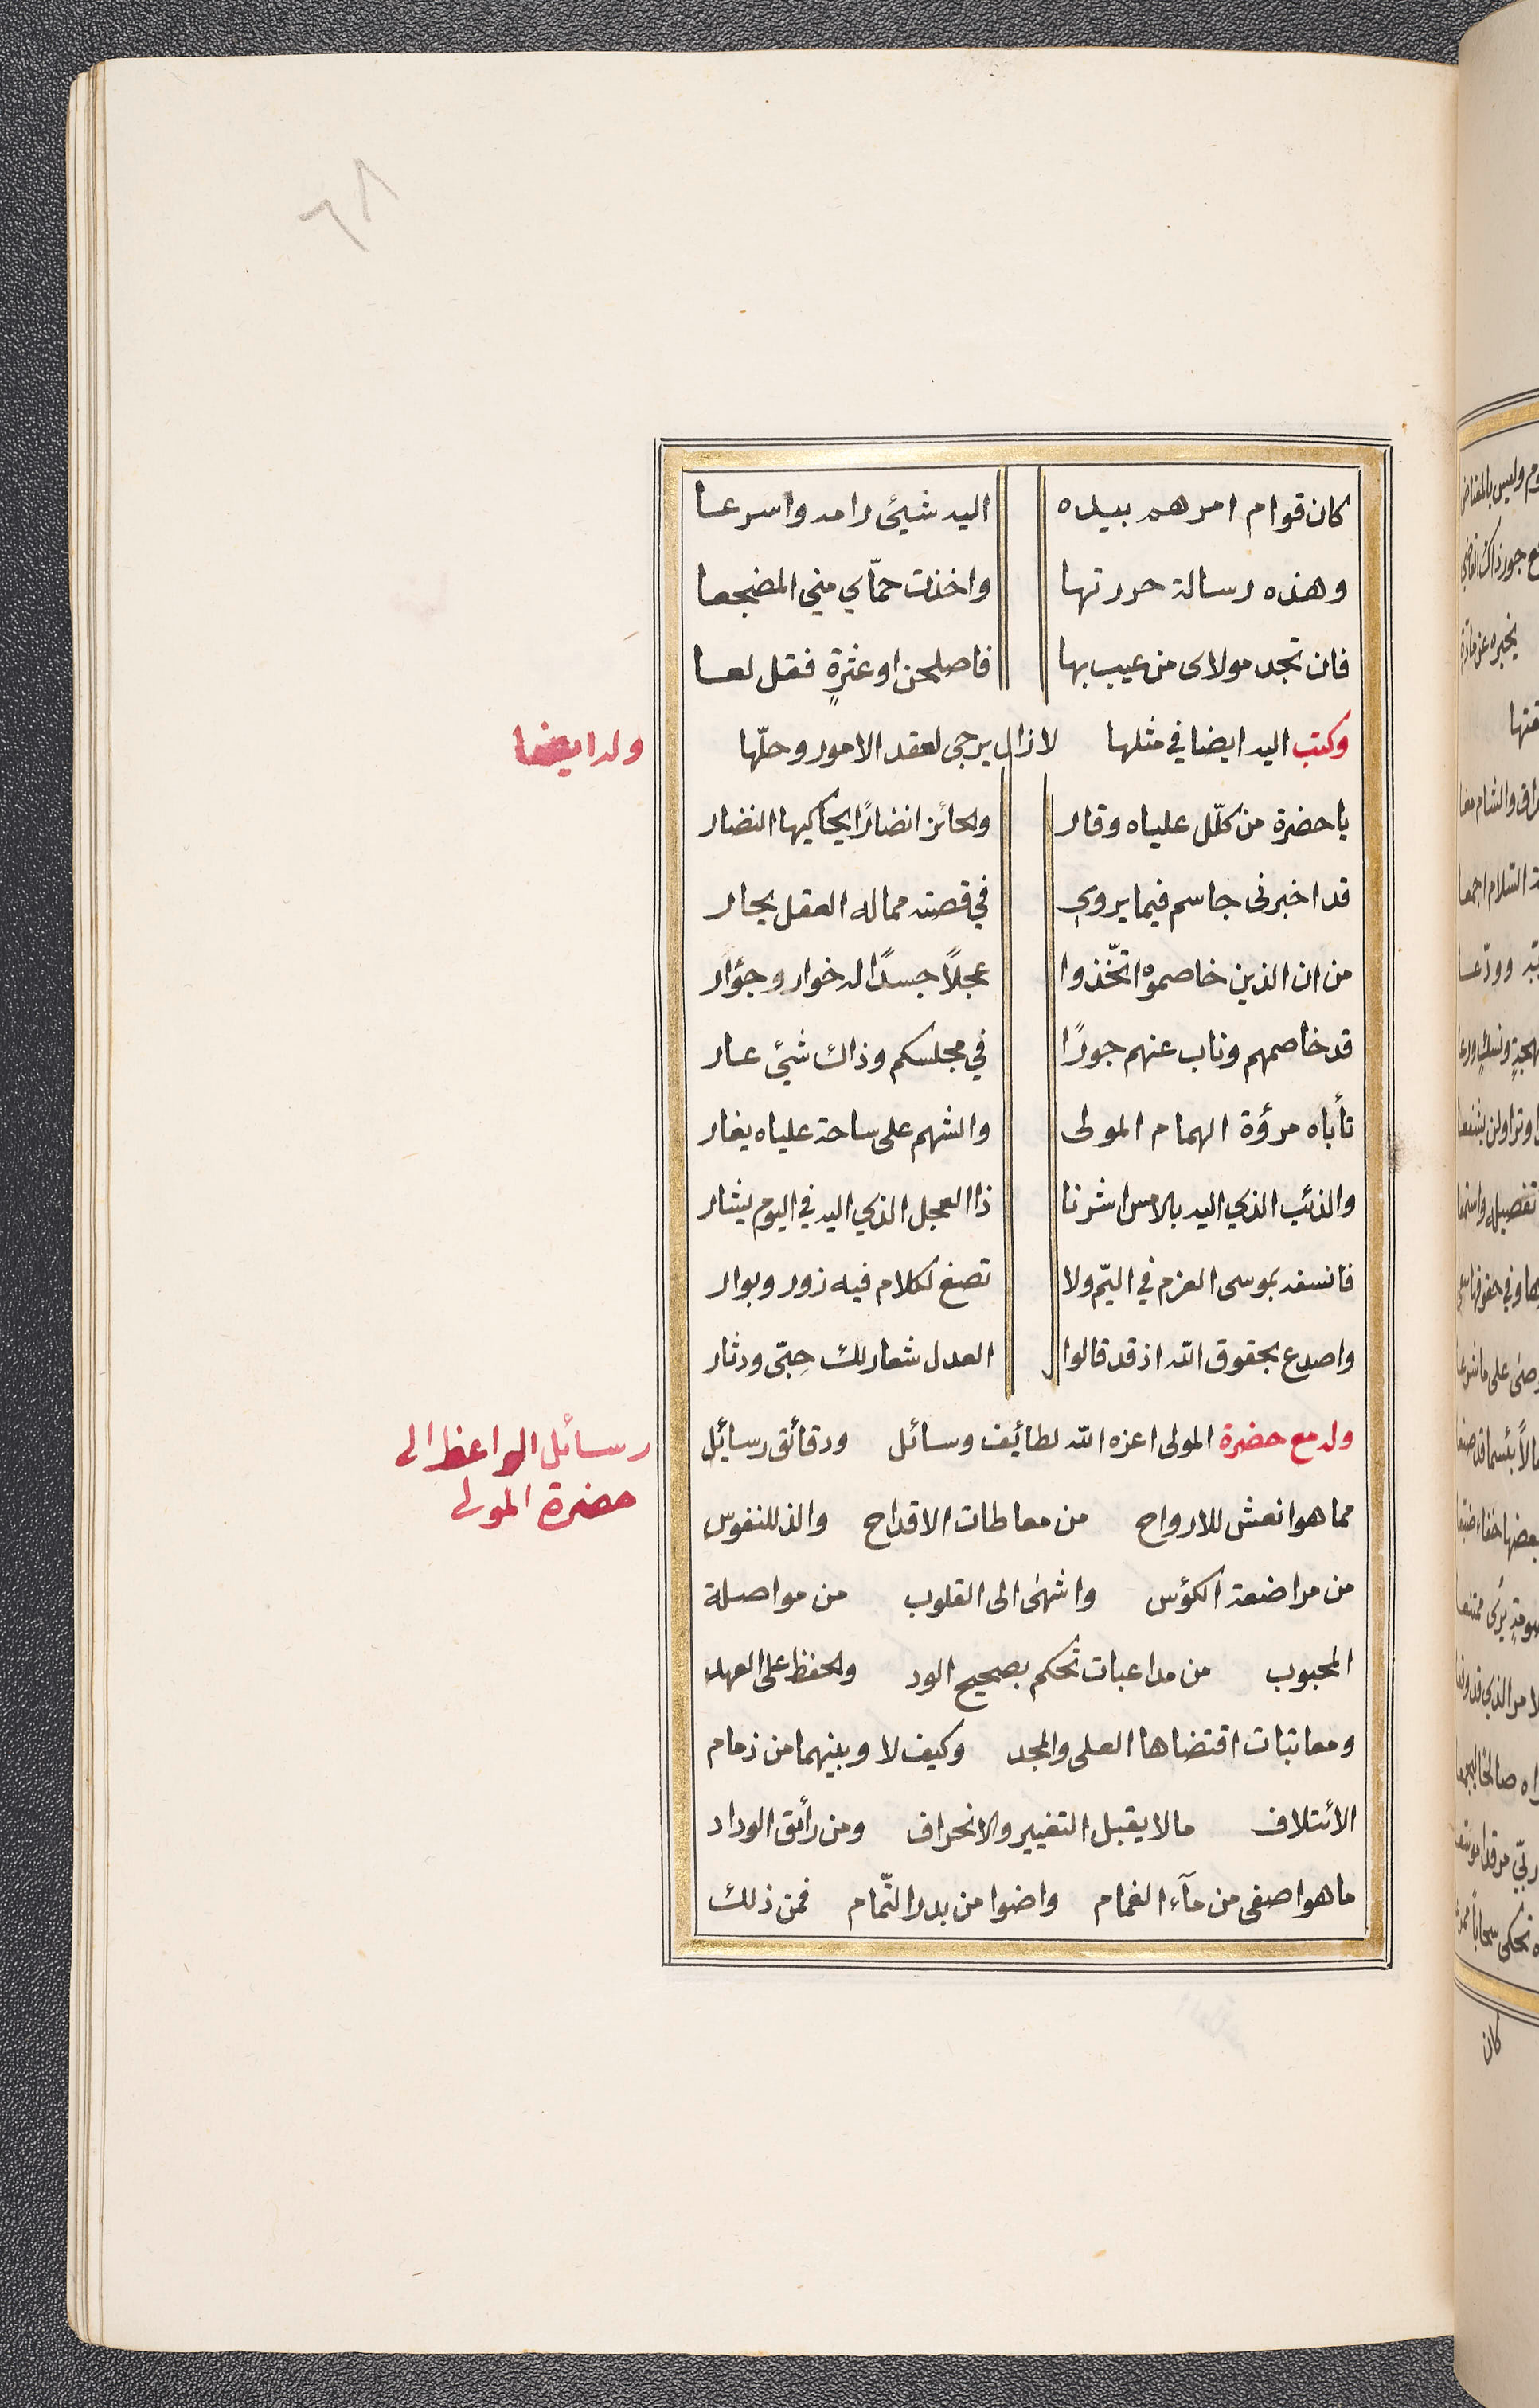 ٦٨
كان قوام امرهم بيده اليه شيئ رامه واسرعا
وهذه رسالة حررتها واخذت حمّاي مني المضجعا
فان تجد مولاى من عيب بها فاصلحن او عثرةٍ فقل لعا
وكتب اليه ايضا في مثلها لازال يرجى لعقد الامور وحلّها
وله ايضا
يا حضرة من كلّل علياه وقار والحائز انضارًا يحاكيها النضار
قد اخبرنى جاسم فيما يروي في قصته مماله العقل يحار
من ان الذين خاصموه اتخّذوا عجلاً جسدًا له خوار وجؤار
قد خاصمهم وناب عنهم جورًا في مجلسكم وذاك شيئ عار
تأباه مرؤة الهمام المولى والشهم على ساحة علياه يغار
والذئب الذي اليه بالامس اشرنا ذا العجل الذي اليه في اليوم يشار
فانسفه بموسى العزم في اليمّ ولا تصغ لكلام فيه زور وبوار
واصدع بحقوق الله اذ قد قالوا العدل شعار لك حِبّى ودثار
وله مع حضرة المولى اعزه الله لطائف وسائل ودقائق رسائل
رسائل الواعظ الى
حضرة المولى
مما هو انعش للارواح من معاطات الاقداح والذ للنفوس
من مراضعة الكؤس واشهىٰ الى القلوب من مواصلة
المحبوب من مداعبات تحكم بصحيح الود والحفظ على العهد
ومعاتبات اقتضاها العلى والمجد وكيف لا وبينهما من زمام
الأئتلاف مالا يقبل التغيير والانحراف ومن رأئق الوداد
ما هو اصفى من مآء الغمام واضوا من بدر التّمام فمن ذلك